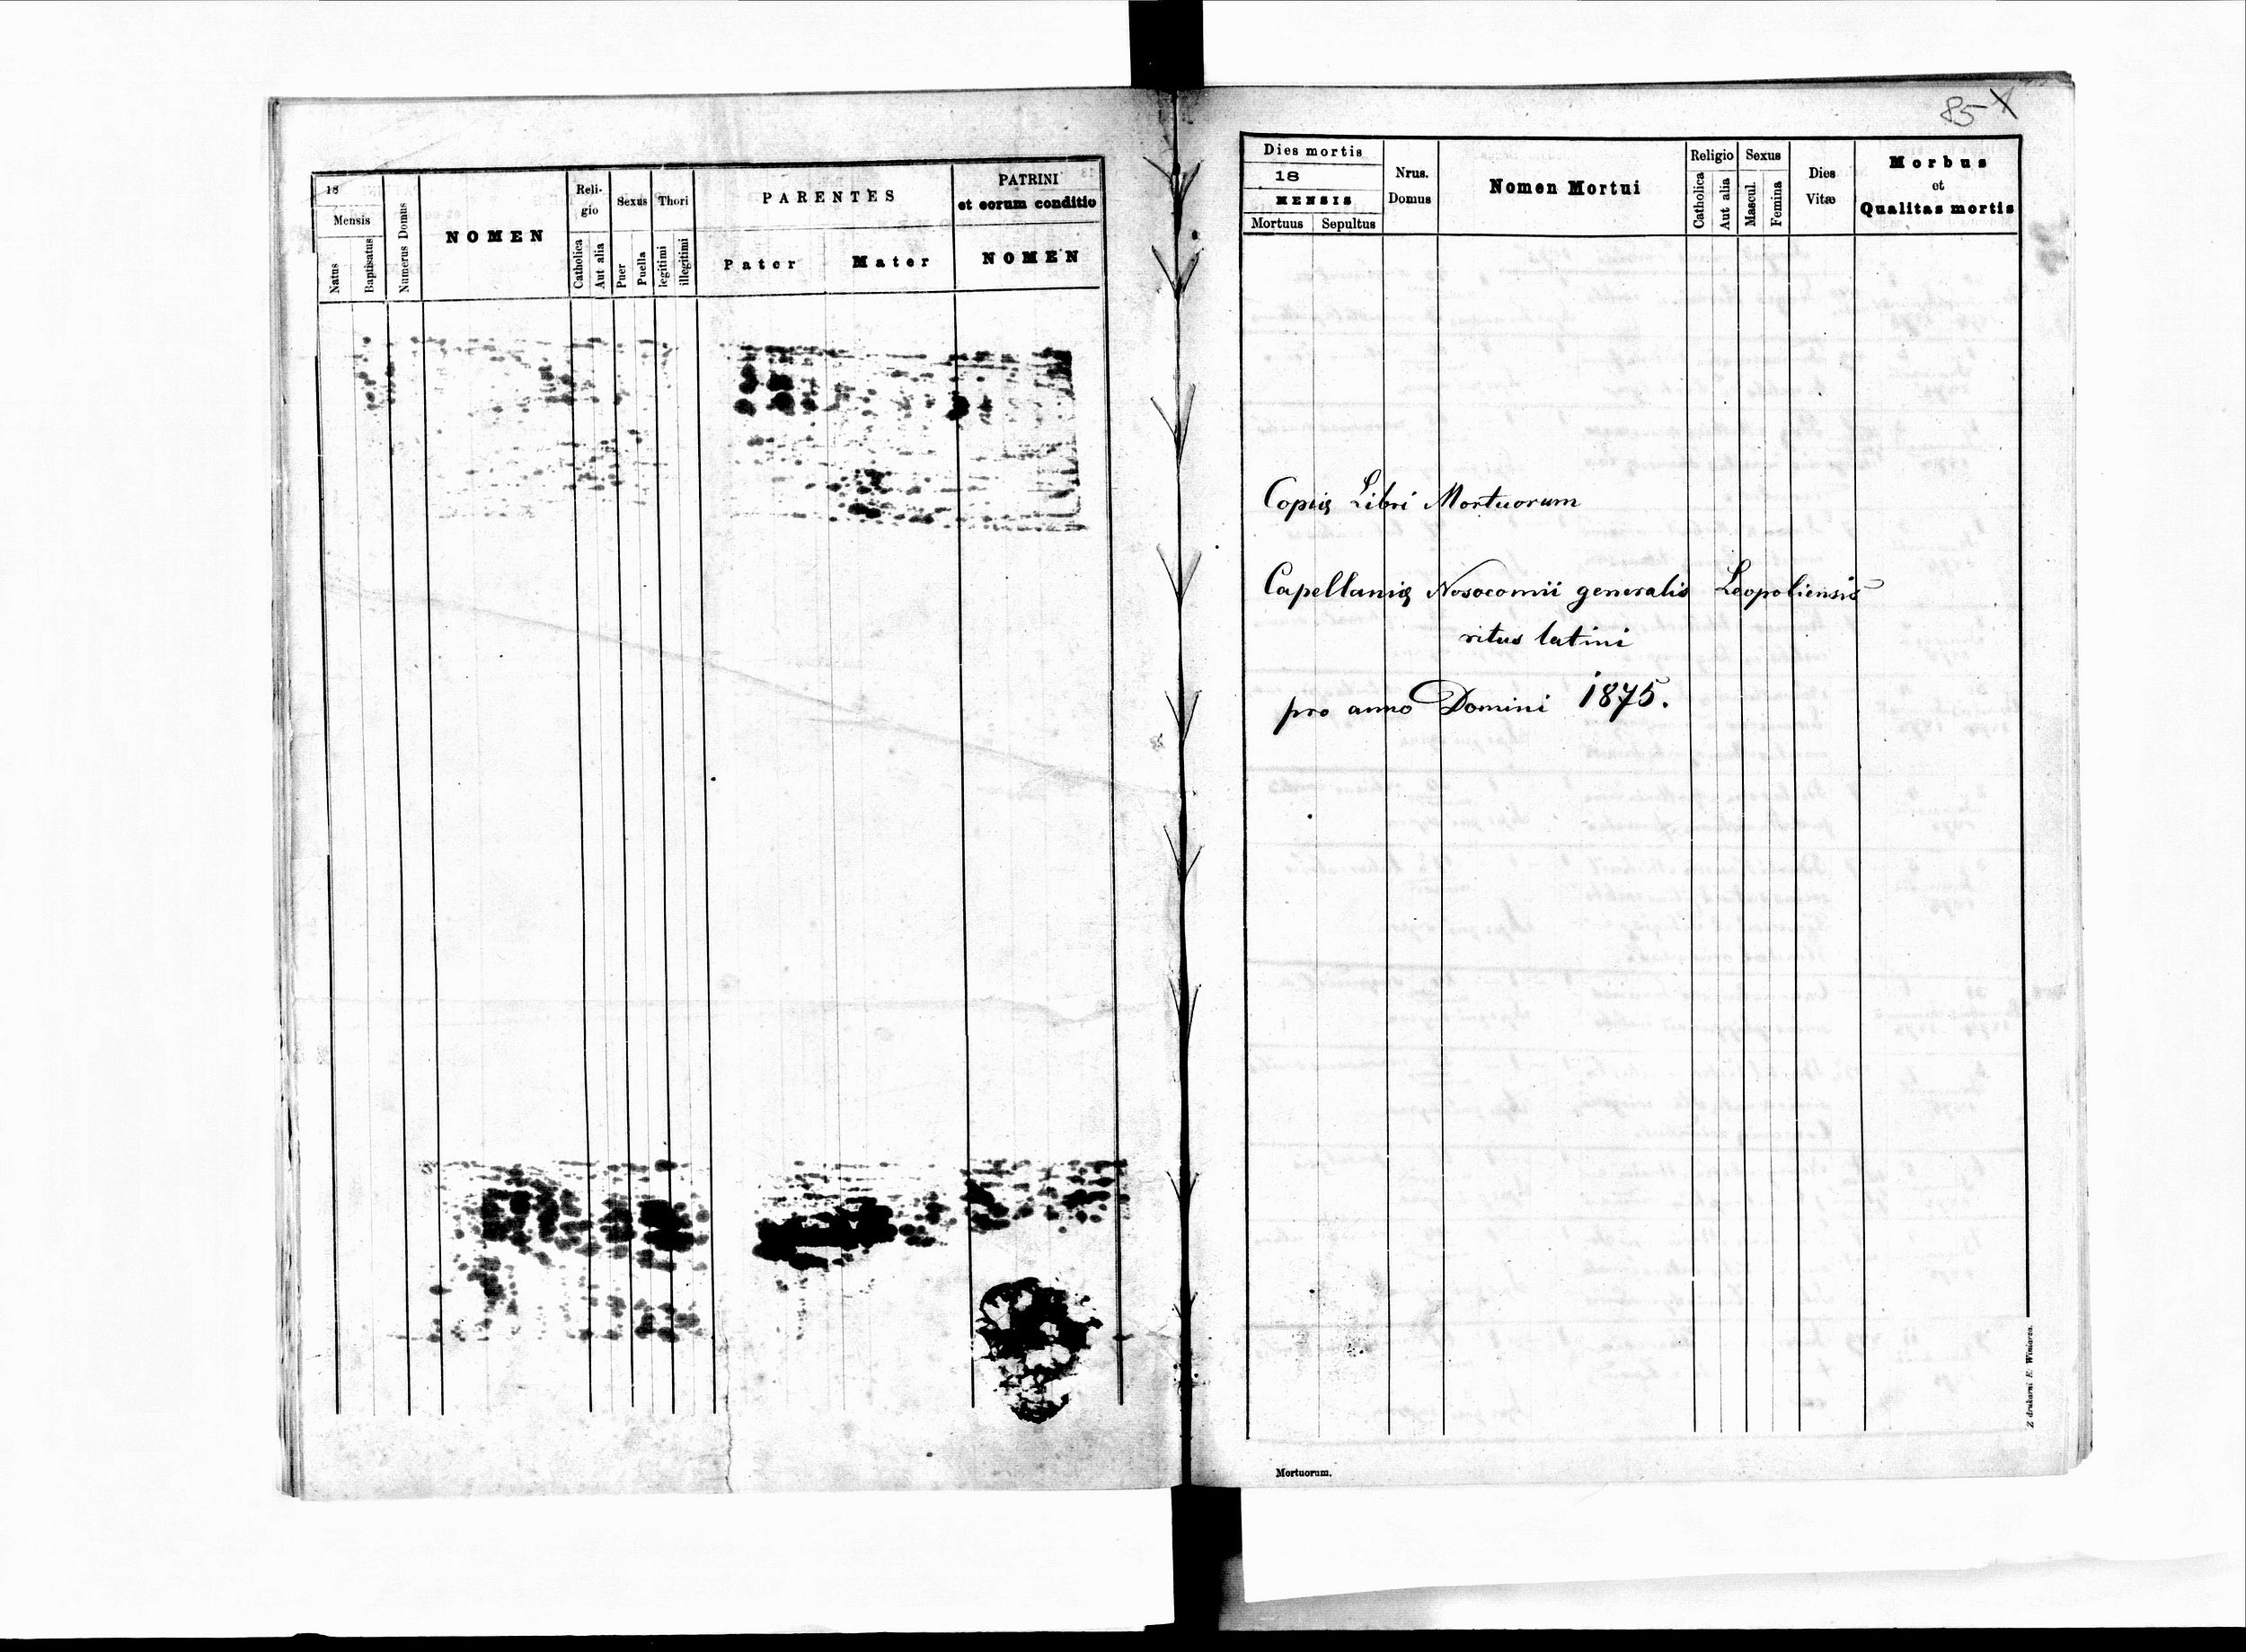 18
Mensis
Natus
Baptisatus
Numerus Domus
NOMEN
Reli-
gio
Catholica
Aut alia
Sexus
Puer
Puella
Thori
legitimi
illegitimi
PARENTES
Pater
Mater
PATRINI
et eorum conditio
NOMEN
85
Dies mortis
18
MENSIS
Mortuus
Sepultus
Nrus.
Domus
Nomen Mortui
Religio
Catholica
Aut alia
Sexus
Mascul.
Femina
Dies
Vitæ
Morbus
et
Qualitas mortis
Copię Libri Mortuorum
Capellanię Nosocomii generalis Leopoliensis
ritus latini
pro anno Domini 1875.
Z drukarni E. Winiarza.
Mortuorum.